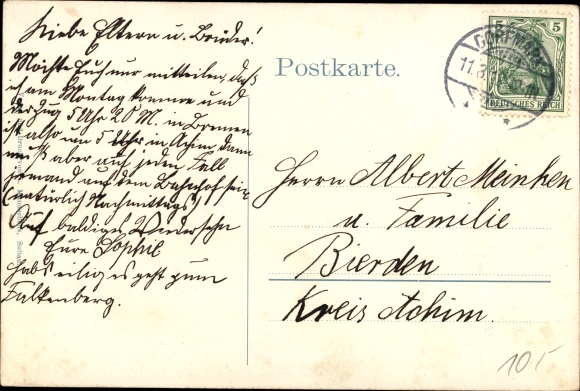 Liebe Eltern u. Brüder!
Möchte Euch nur mitteilen, daß
ich am Montag komme und
der Zug 5 Uhr 20 M. in Bremen
ist also um 5 Uhr in Achim, dann
muß aber auf jeden Fall
jemand auf dem Bahnhof sein
(natürlich Nachmittags)
Auf baldiges Wiedersehn
Eure Sophie
habs eilig, es geht zum
Falkenberg.
Postkarte.
DORFMARK
11.8
5 5
DEUTSCHES REICH
Herrn Albert Meinken
u. Familie
Bierden
Kreis Achim.
10.-